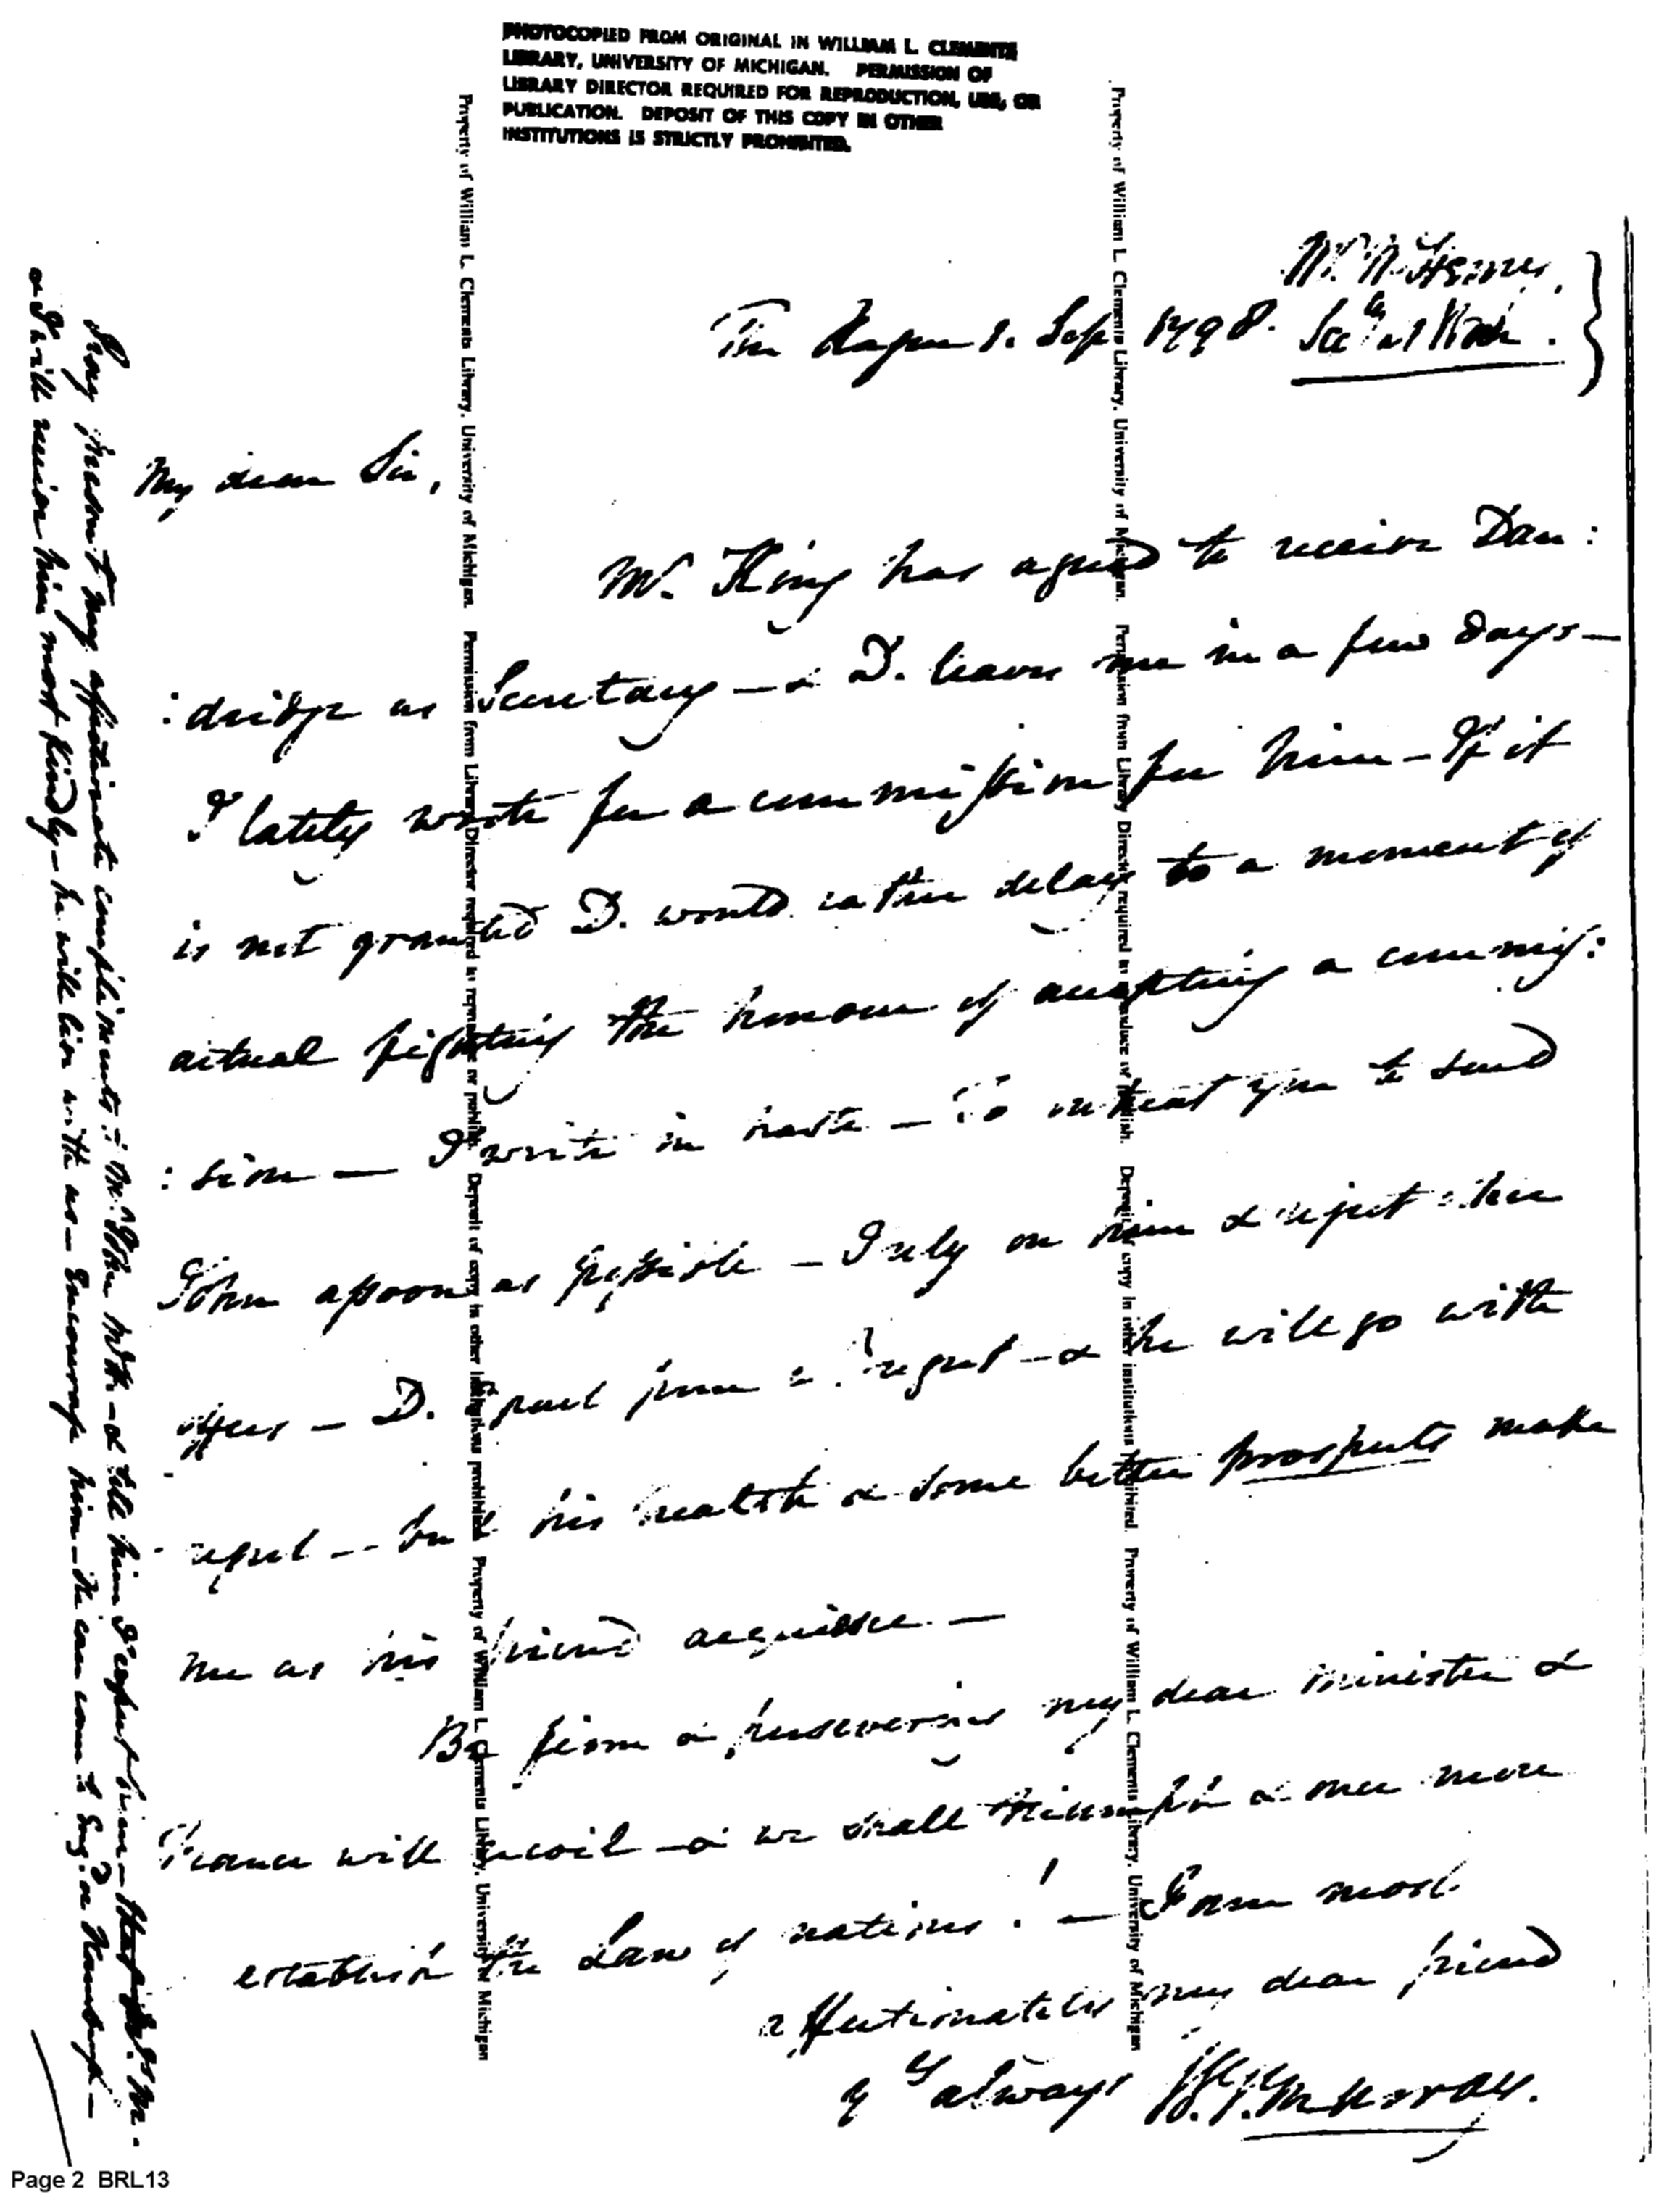 PHOTOCOPIED FROM ORIGINAL IN WILLIAM L. CLEMENTS
LIBRARY, UNIVERSITY OF MICHIGAN. PERMISSION OF
LIBRARY DIRECTOR REQUIRED FOR REPRODUCTION, USE, OR
PUBLICATION. DEPOSIT OF THIS COPY IN OTHER
INSTITUTIONS IS STRICTLY PROHIBITED.
Property of William L. Clements Library, University of Michigan. Permission from Library Director required to reproduce or publish. Deposit of copy in other institutions prohibited. Property of William L. Clements Library, University of Michigan
Property of William L. Clements Library, University of Michigan. Permission from Library Director required to reproduce or publish. Deposit of copy in other institutions prohibited. Property of William L. Clements Library, University of Michigan
The Hague 1. Sep. 1798.
My dear Sir,
Mr. King has agreed to receive Dan:
:dridge as Secretary — & D. leaves me in a few days —
I lately wrote for a commission for him — If it
is not granted D. would rather delay to a moment of
actual fighting the honour of accepting a commis:
:sion — I write in haste — To intreat you to send
John as soon as possible — I rely on him & reject other
offers — D. I part from with regret — & he will go with
regret — but his health & some better prospects make
me as his friend acquiesce —
Be firm & persevering my dear minister &
France will recoil — & we shall triumph & once more
establish the Law of nations! — I am most
affectionately my dear friend
yrs always W. V. Murray.
Pray present my affectionate compliments to Mrs. — & tell him I expect him —
& I will receive him most kindly — he will live with us — Encourage him — He can come to Engd. or Hamburgh —
Page 2 BRL13